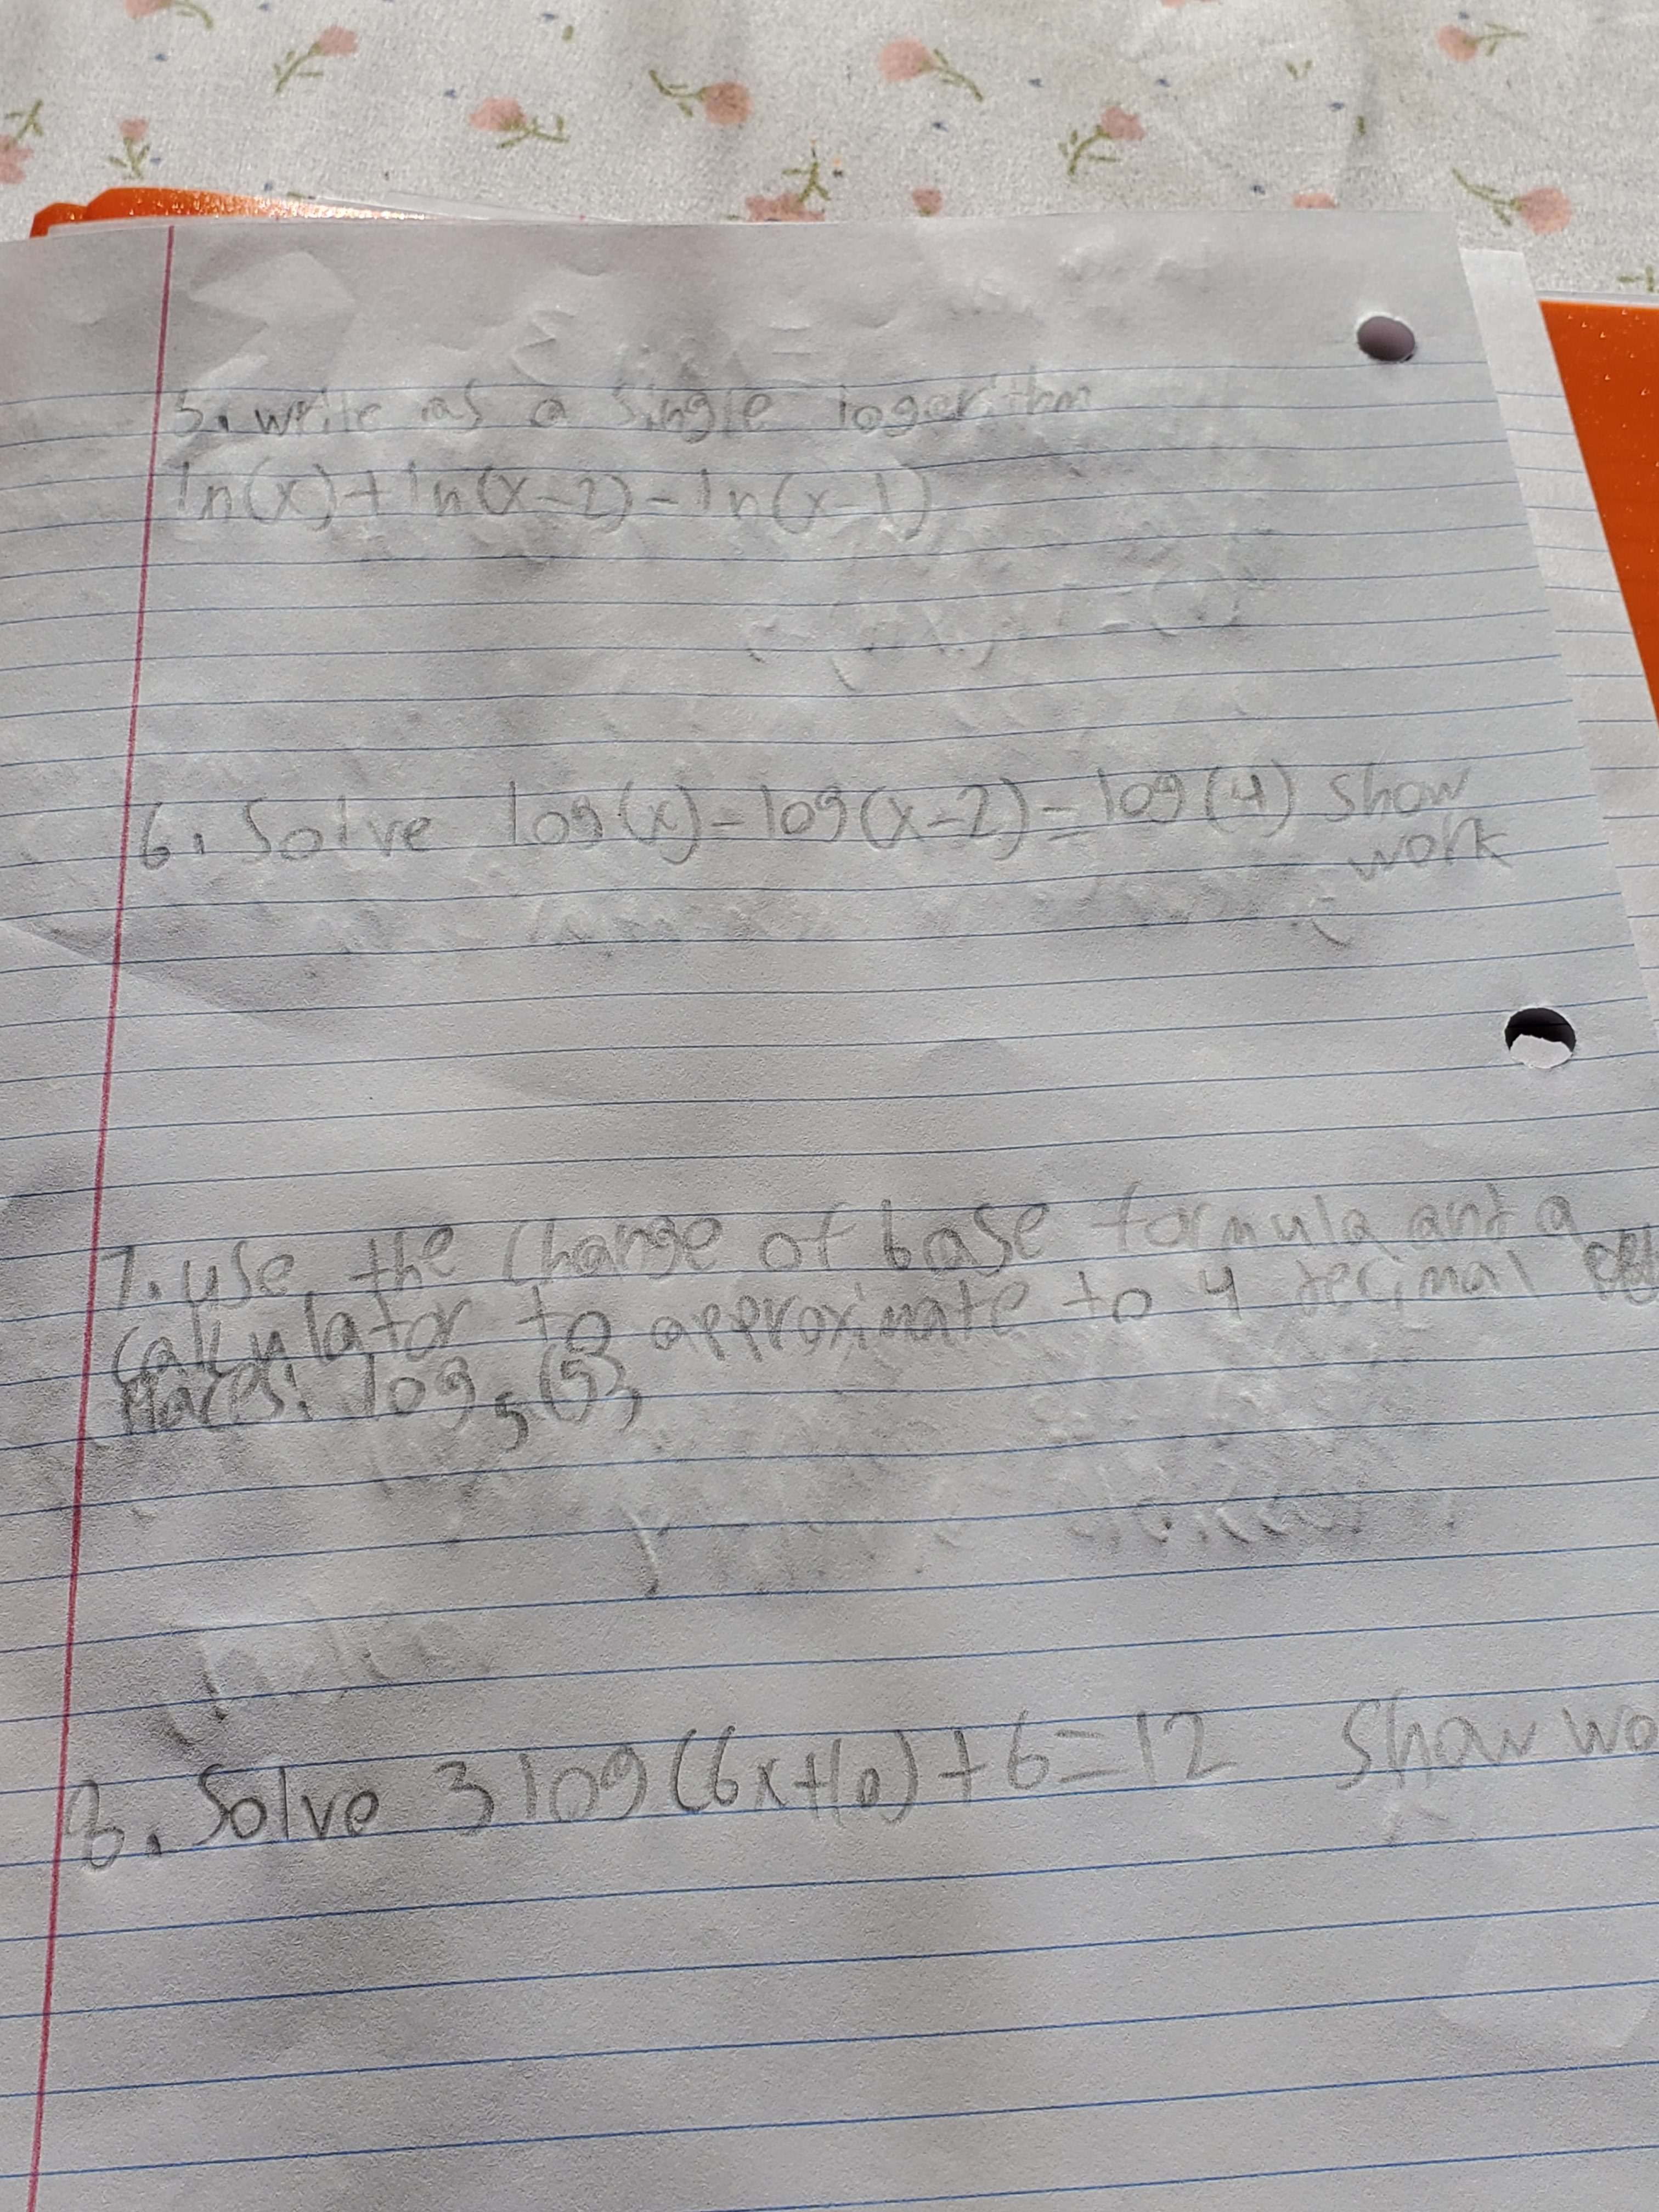 5. write as a single logarithm
ln(x)+ln(x-2)-ln(x-1)
6. Solve log(x)-log(x-2)=log(4) show
work
7. use the change of base formula and a
calculator to approximate to 4 decimal
Places: log₅(5),
8. Solve 3log(6x+10)+6=12 Show wo